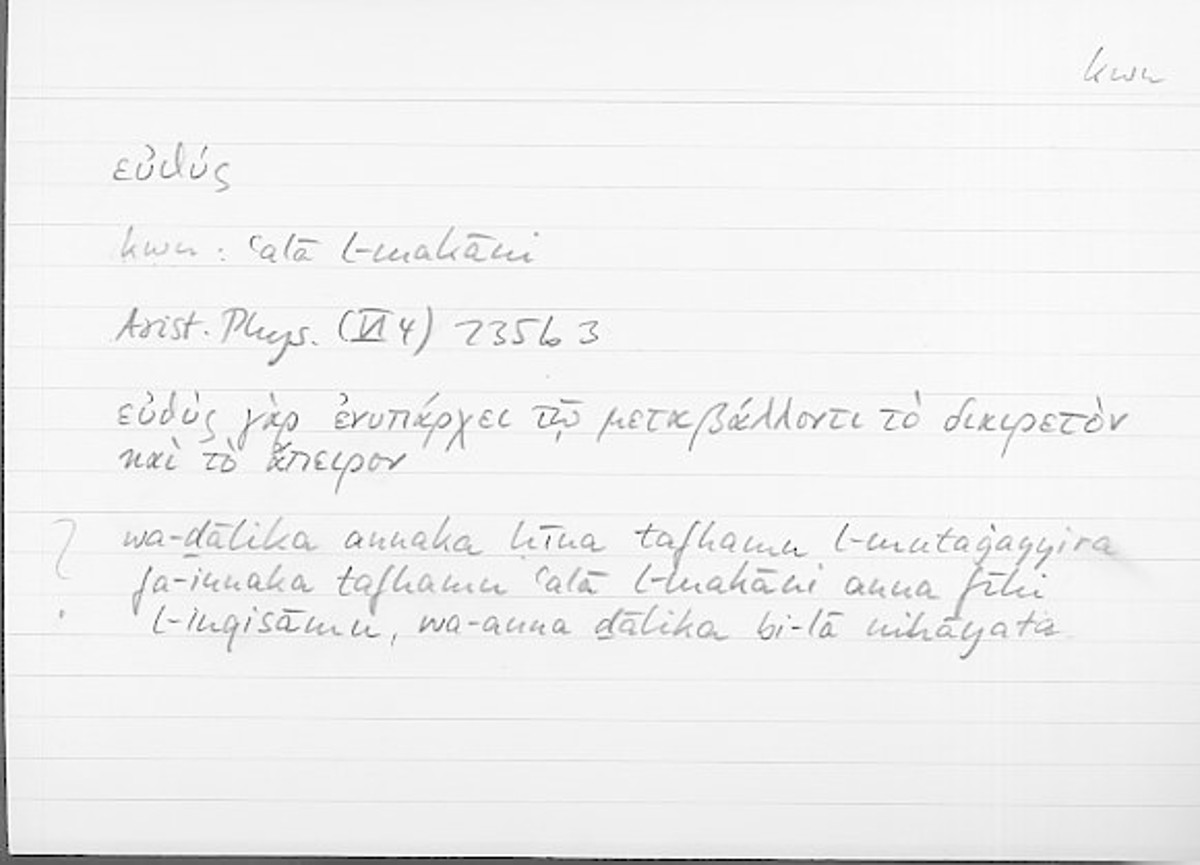 kwn
εὐθύς
kwn : ʿalā l-makāni
Arist. Phys. (VI 4) 235b 3
εὐθὺς γὰρ ἐνυπάρχει τῷ μεταβάλλοντι τὸ διαιρετὸν
καὶ τὸ ἄπειρον
wa-ḏālika annaka ḥīna tafhamu l-mutaġayyira
fa-innaka tafhamu ʿalā l-makāni anna fīhi
l-inqisāmu, wa-anna ḏālika bi-lā nihāyata